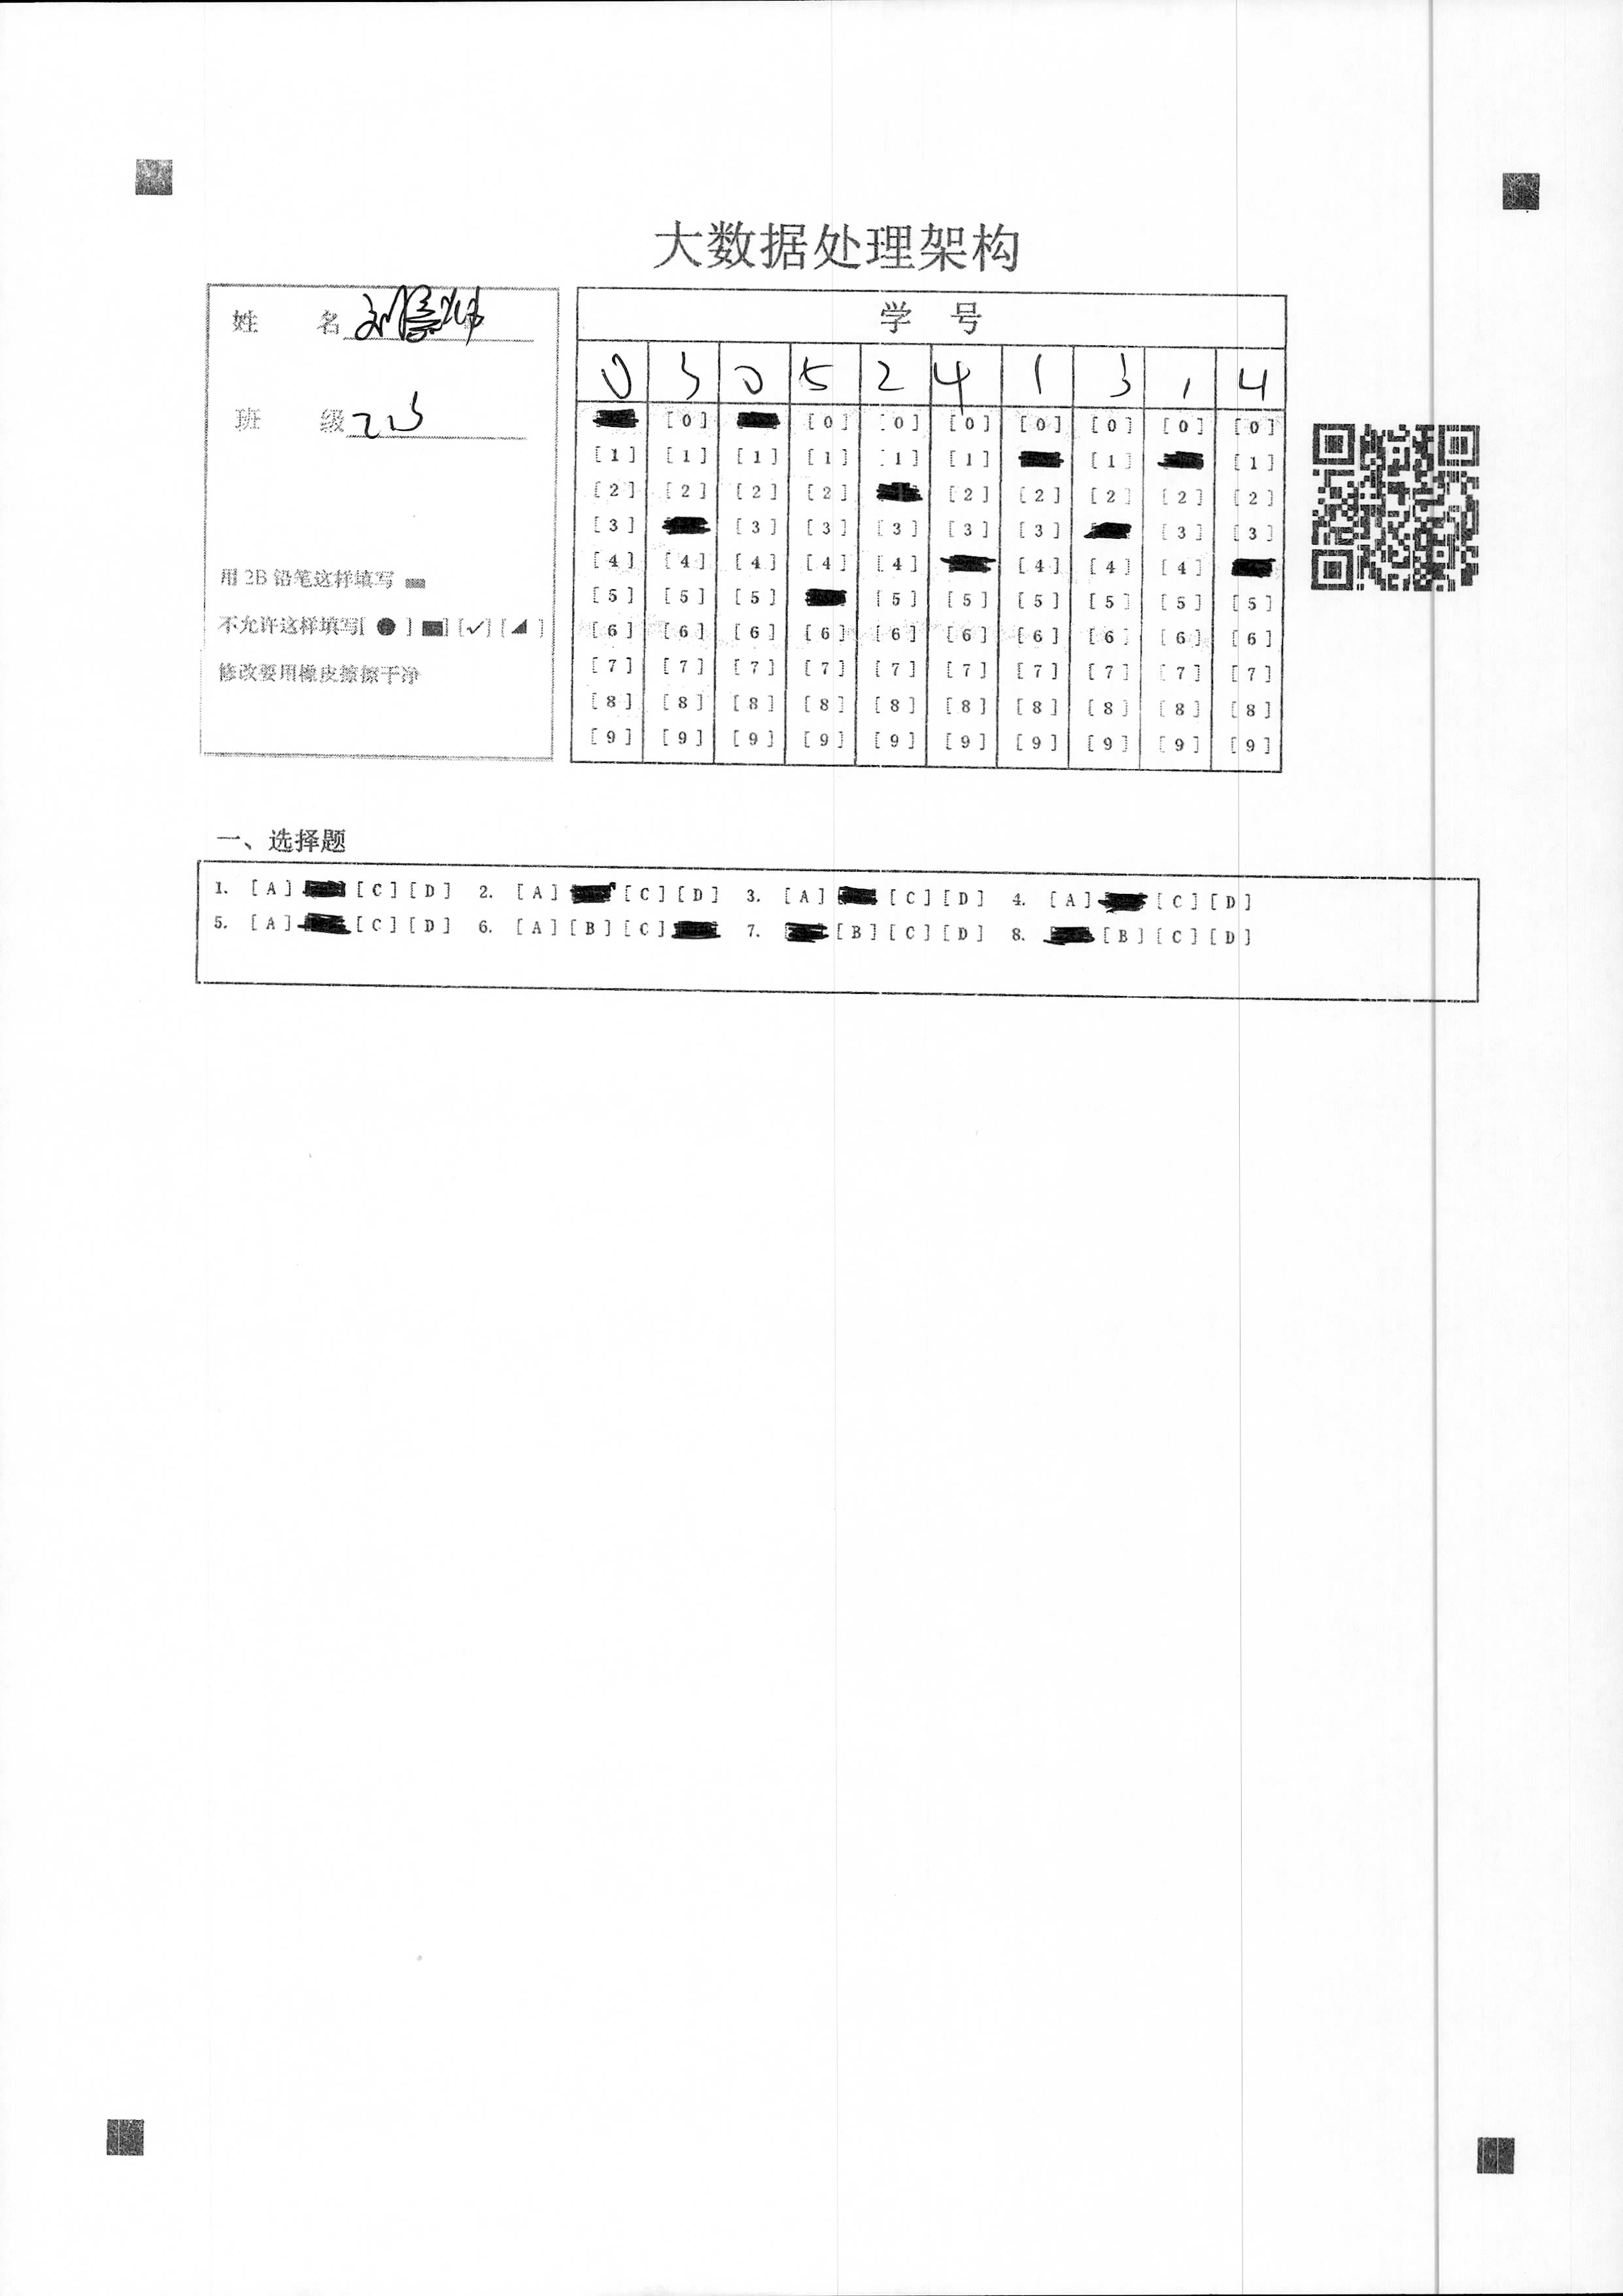 大数据处理架构
姓 名
班 级
用 2B 铅笔这样填写
不允许这样填写[ ● ] [ ■ ] [✓] [◢ ]
修改要用橡皮擦擦干净
学 号
0 3 0 5 2 4 1 3 1 4
[0] [0] [0] [0] [0] [0] [0] [0]
[1] [1] [1] [1] [1] [1] [1] [1]
[2] [2] [2] [2] [2] [2] [2] [2] [2]
[3] [3] [3] [3] [3] [3] [3] [3]
[4] [4] [4] [4] [4] [4] [4] [4]
[5] [5] [5] [5] [5] [5] [5] [5] [5]
[6] [6] [6] [6] [6] [6] [6] [6] [6] [6]
[7] [7] [7] [7] [7] [7] [7] [7] [7] [7]
[8] [8] [8] [8] [8] [8] [8] [8] [8] [8]
[9] [9] [9] [9] [9] [9] [9] [9] [9] [9]
一、选择题
1. [A] [C] [D] 2. [A] [C] [D] 3. [A] [C] [D] 4. [A] [C] [D]
5. [A] [C] [D] 6. [A] [B] [C] 7. [B] [C] [D] 8. [B] [C] [D]